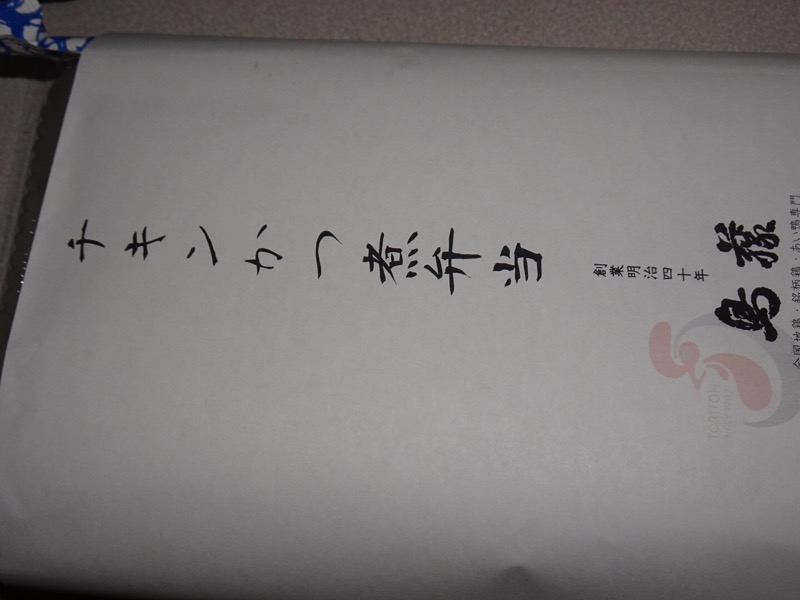 チキンかつ煮弁当
創業明治四十年
鳥藤
全国地鶏・銘柄鶏・あい鴨専門
TORITOH